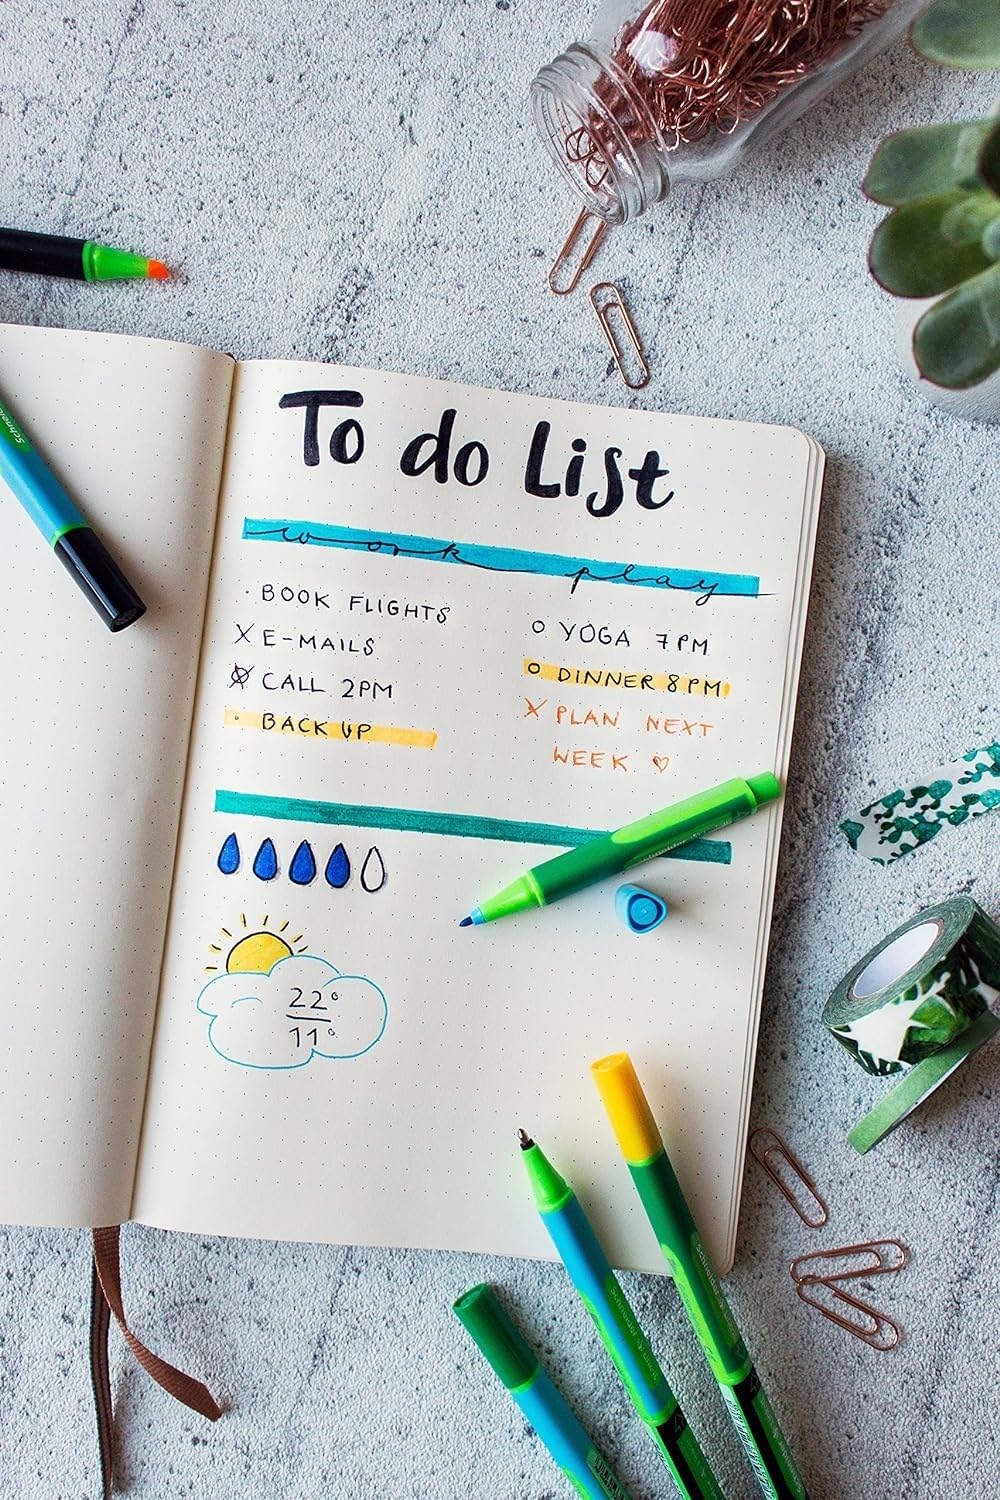 To do List
work play
· BOOK FLIGHTS
X E-MAILS
CALL 2PM
· BACK UP
O YOGA 7PM
O DINNER 8PM
X PLAN NEXT
WEEK ♡
22°
11°
Schneider
Schneider
Schneider